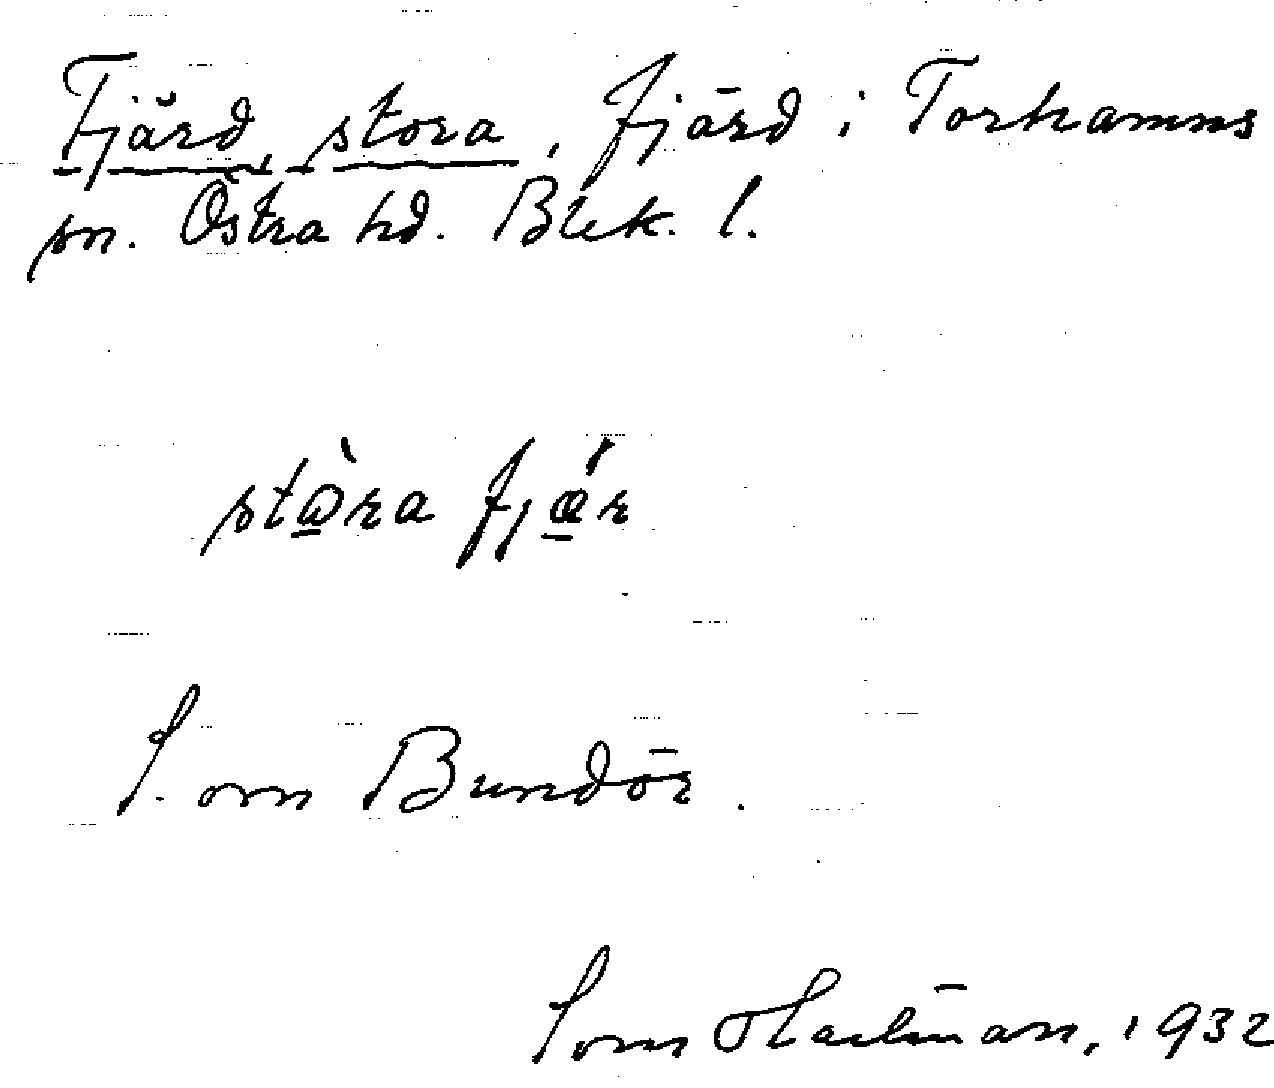 Fjärd, stora, fjärd i Torhamns
sn. Östra hd. Blek. l.
stὼra fjǽr
S. om Bundör.
Hartman, 1932